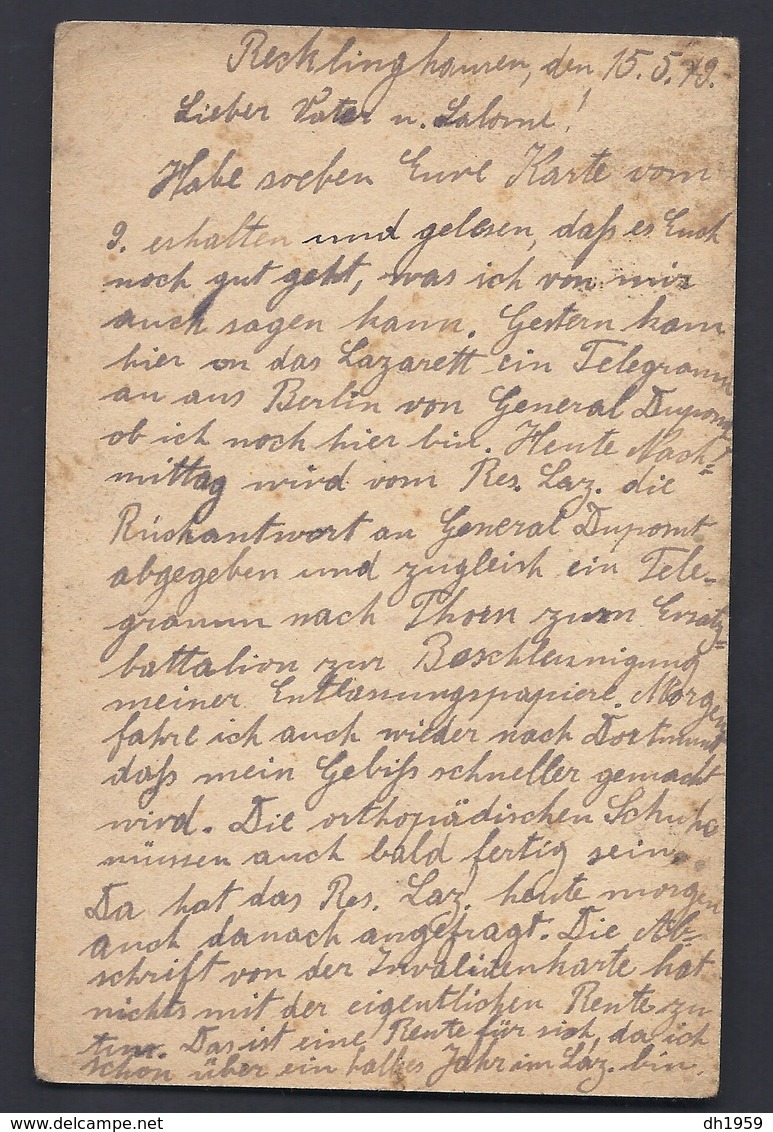 Recklinghausen, den 15.5.19.
Lieber Vater u. Salome!
Habe soeben Eure Karte vom
9. erhalten und gelesen, daß es Euch
noch gut geht, was ich von mir
auch sagen kann. Gestern kam
hier in das Lazarett ein Telegramm
an aus Berlin von General Dupont
ob ich noch hier bin. Heute Nach-
mittag wird vom Res. Laz. die
Rückantwort an General Dupont
abgegeben und zugleich ein Tele-
gramm nach Thorn zum Ersatz-
battalion zur Beschleunigung
meiner Entlassungspapiere. Morgen
fahre ich auch wieder nach Dortmund
daß mein Gebiß schneller gemacht
wird. Die orthopädischen Schuhe
müssen auch bald fertig sein.
Da hat das Res. Laz. heute morgen
auch danach angefragt. Die Ab-
schrift von der Invalidenkarte hat
nichts mit der eigentlichen Rente zu
tun. Das ist eine Rente für sich, da ich
schon über ein halbes Jahr im Laz. bin.
dh1959